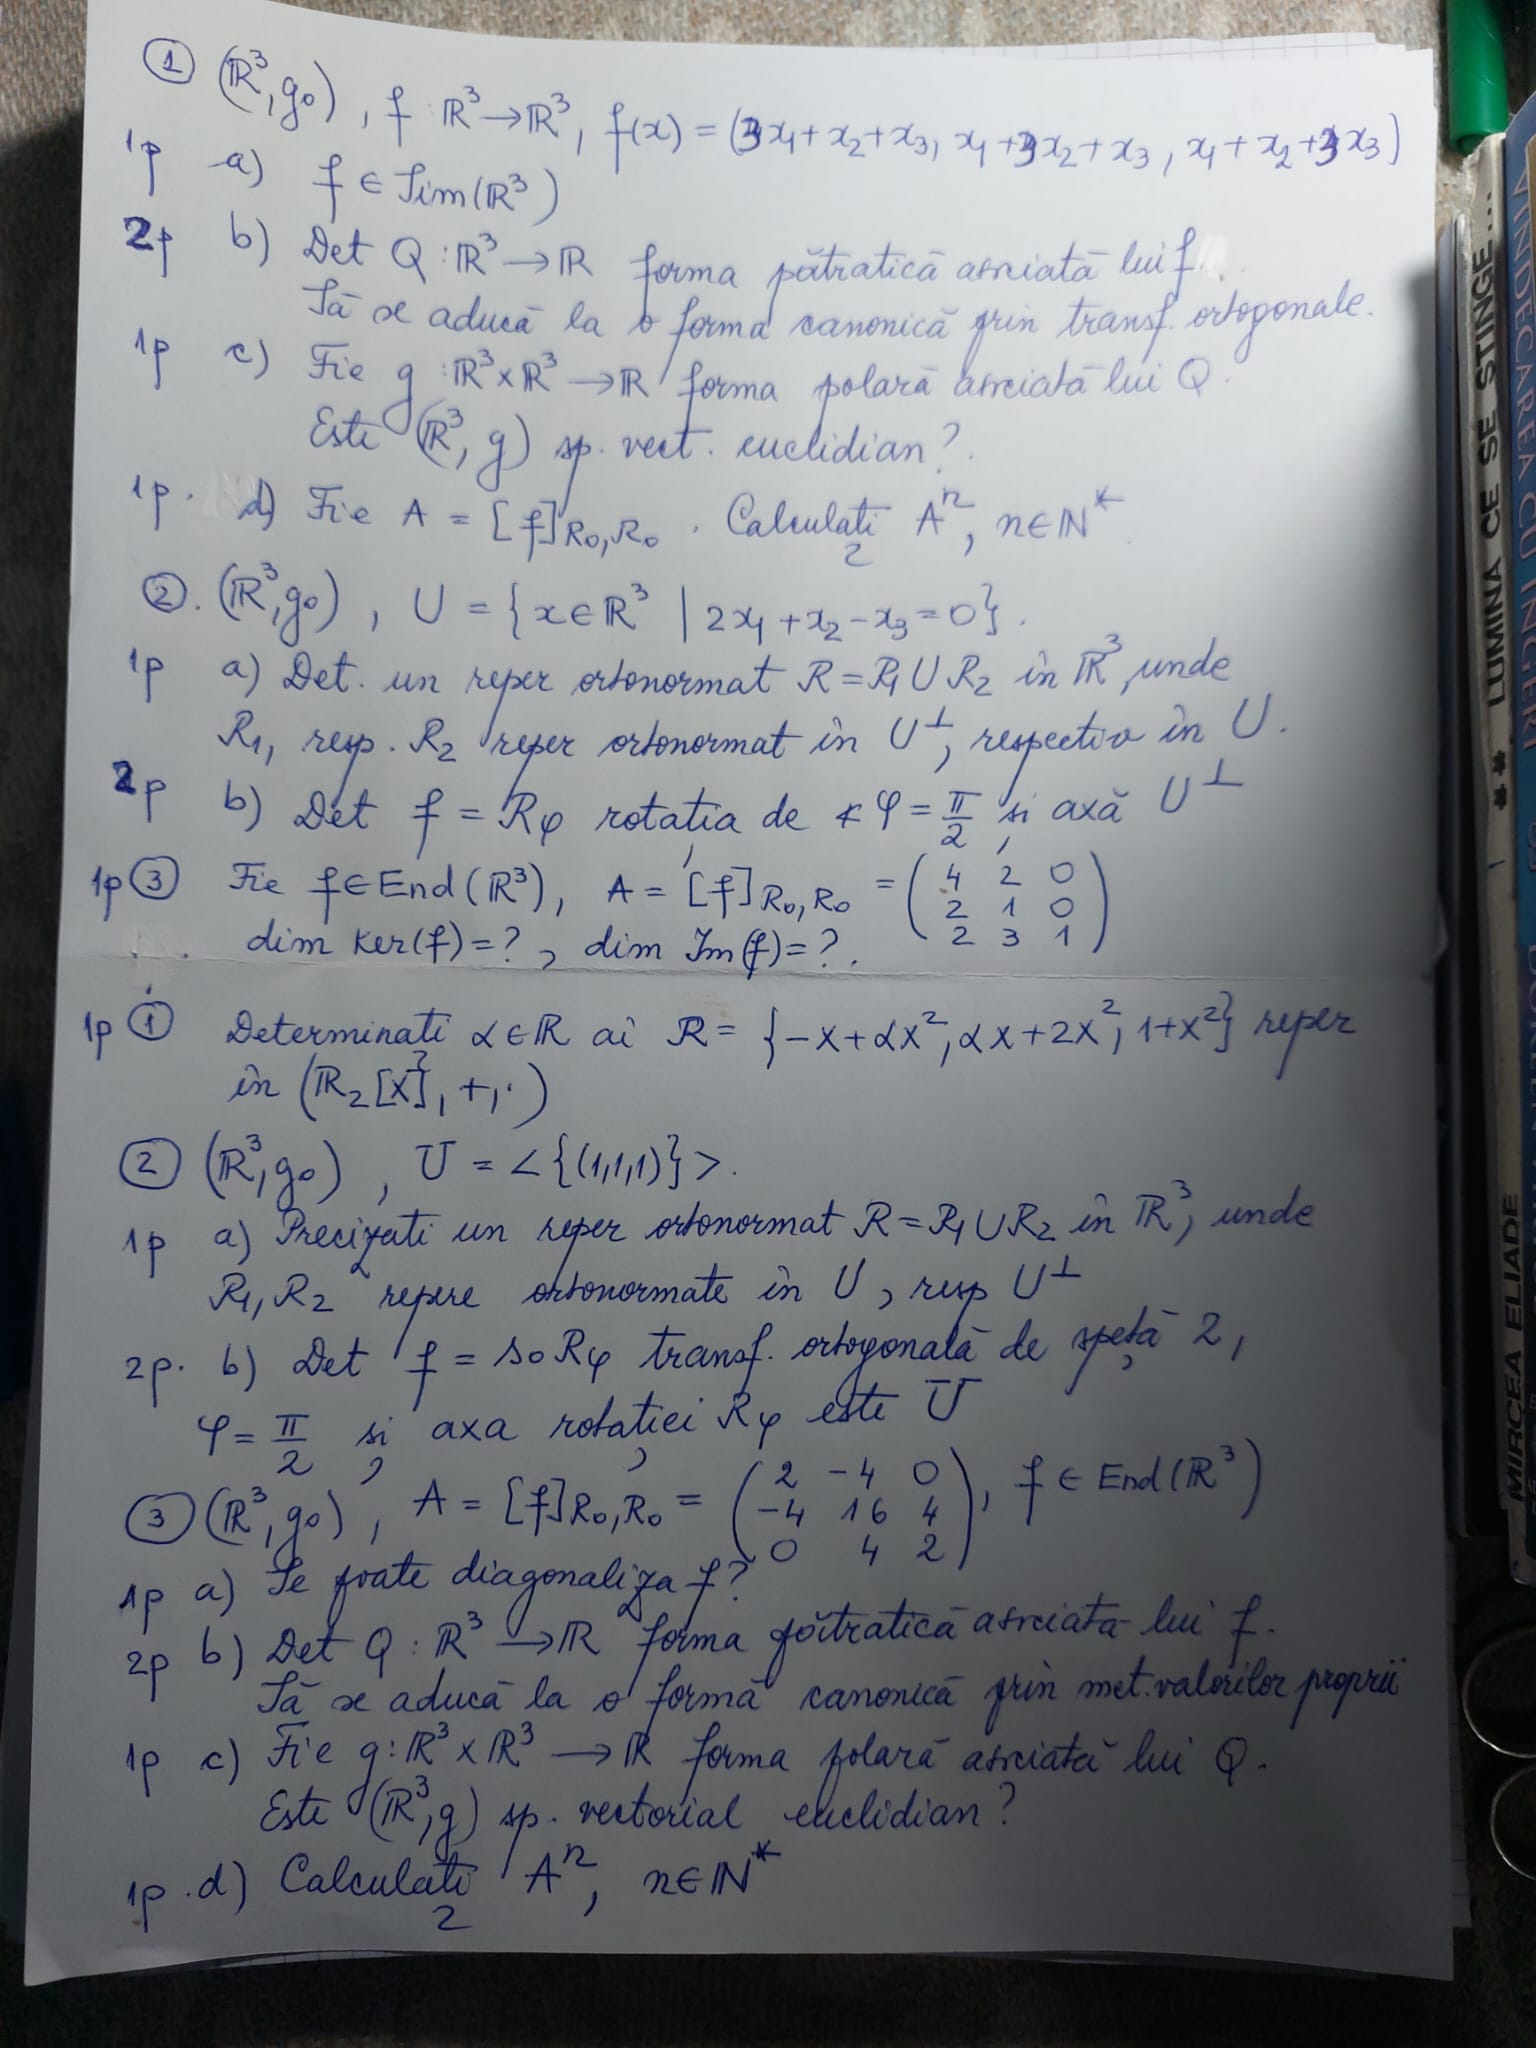 ① (ℝ³, g₀), f : ℝ³ → ℝ³, f(x) = (3x₁ + x₂ + x₃, x₁ + 3x₂ + x₃, x₁ + x₂ + 3x₃)
1p a) f ∈ Sim(ℝ³)
2p b) Det Q : ℝ³ → ℝ forma pătratică asociată lui f.
Să se aducă la o forma canonică prin transf. ortogonale.
1p c) Fie g : ℝ³ × ℝ³ → ℝ forma polară asociată lui Q.
Este (ℝ³, g) sp. vect. euclidian?
1p. d) Fie A = [f]R₀,R₀ . Calculați Aⁿ, n ∈ ℕ*
②. (ℝ³, g₀), U = {x ∈ ℝ³ | 2x₁ + x₂ - x₃ = 0}.
1p a) Det. un reper ortonormat R = R₁ ∪ R₂ în ℝ³, unde
R₁, resp. R₂ reper ortonormat în U⊥, respectiv în U.
2p b) Det f = Rφ rotația de ∢ φ = π/2 și axă U⊥
1p ③ Fie f ∈ End(ℝ³), A = [f]R₀,R₀ = (4 2 0
2 1 0
2 3 1)
dim Ker(f) = ?, dim Im(f) = ?.
1p ① Determinați α ∈ ℝ aî R = {-X + αX², αX + 2X², 1 + X²} reper
în (ℝ₂[X], +, ·)
② (ℝ³, g₀), U = <{(1,1,1)}>.
1p a) Precizați un reper ortonormat R = R₁ ∪ R₂ în ℝ³, unde
R₁, R₂ repere ortonormate în U, resp U⊥
2p. b) Det f = s ∘ Rφ transf. ortogonală de speță 2,
φ = π/2 și axa rotației Rφ este U
③ (ℝ³, g₀), A = [f]R₀,R₀ = (2 -4 0
-4 16 4
0 4 2), f ∈ End(ℝ³)
1p a) Se poate diagonaliza f?
2p b) Det Q : ℝ³ → ℝ forma pătratică asociată lui f.
Să se aducă la o formă canonică prin met. valorilor proprii
1p c) Fie g : ℝ³ × ℝ³ → ℝ forma polară asociată lui Q.
Este (ℝ³, g) sp. vectorial euclidian?
1p. d) Calculați Aⁿ, n ∈ ℕ*
LUMINA CE SE STINGE...
MIRCEA ELIADE